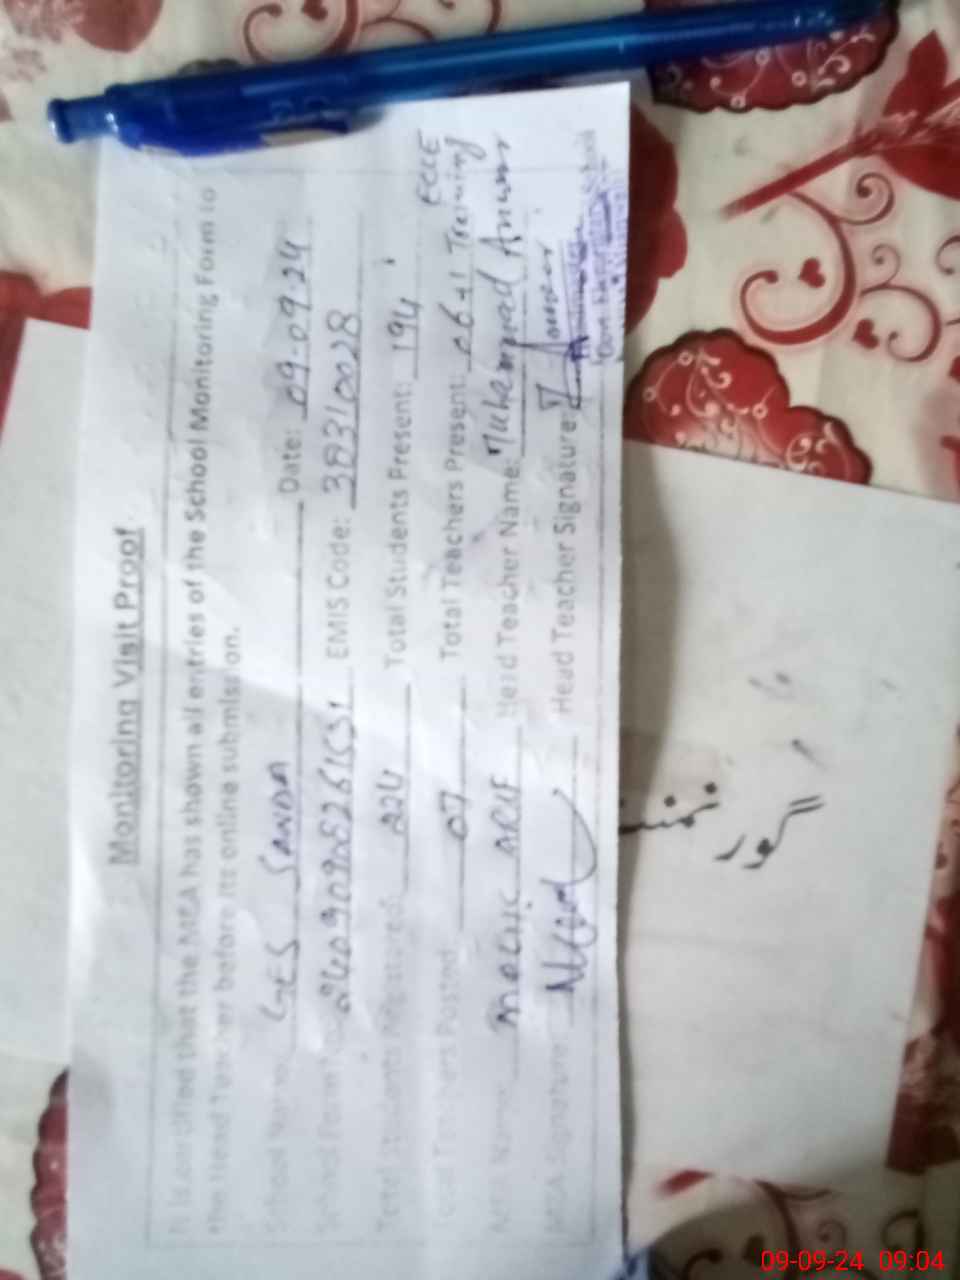 Monitoring Visit Proof
It is certified that the MEA has shown all entries of the School Monitoring Form to
the Head Teacher before its online submission.
School Name: GES SANDA Date: 09-09-24
School Form No: EMIS Code: 38310028
Total Students 224 Total Students Present: 194
Total Teachers Posted: 07 Total Teachers Present: 06+1 Training ECCE
MEA Name: MALIK ARIF Head Teacher Name: Muhammad Anwar
MEA Signature: Head Teacher Signature:
گورنمنٹ
09-09-24 09:04